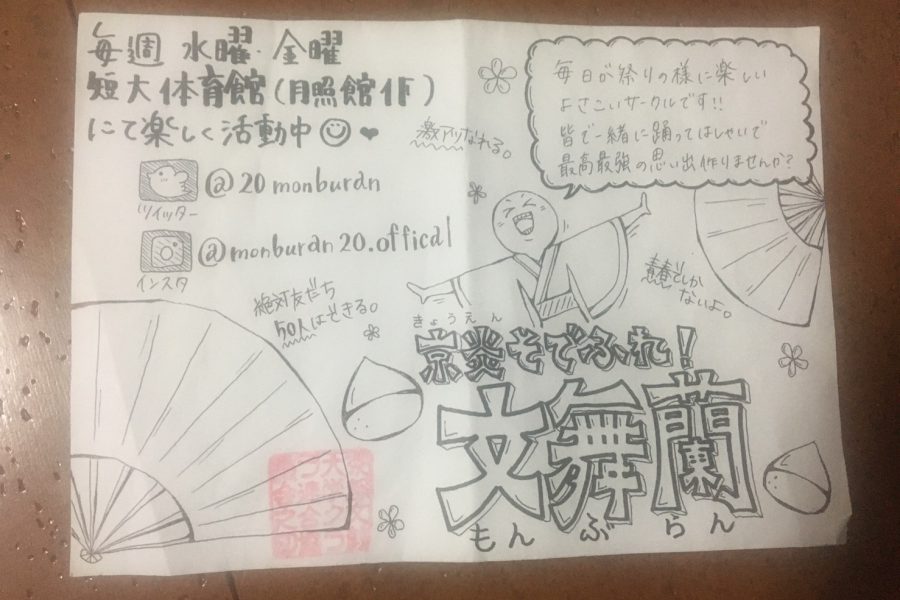 毎週 水曜・金曜
短大体育館(月照館1F)
にて楽しく活動中
ツイッター
@20monburan
インスタ
@monburan20.offical
激アツなれる。
毎日が祭りの様に楽しい
よさこいサークルです!!
皆で一緒に踊ってはしゃいで
最高最強の思い出作りませんか?
青春でしか
ないよ。
絶対友だち
50人はできる。
きょうえん
京炎そでふれ!
文舞蘭
もんぶらん